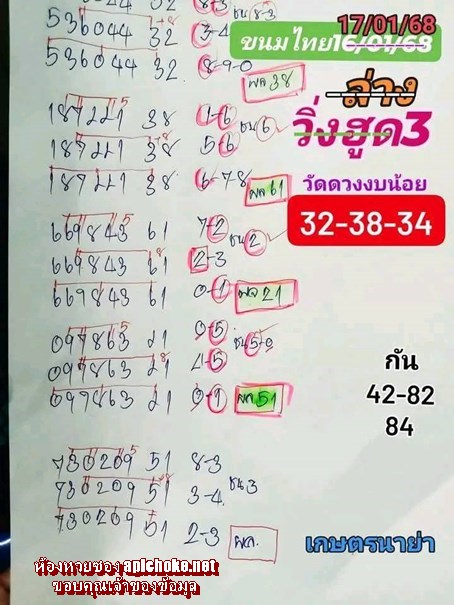 536044 32 3-4
17/01/68
ขนมไทย16/01/68
536044 32 8-9-0
ผล 38
ล่าง
187221 38 1-6
วิ่งฮูด3
187221 38 5-6 ชน 6
187221 38 6-7-8 ผล 61
วัดดวงงบน้อย
32-38-34
669843 61 7-2
669843 61 2-3 ชน 2
669843 61 0-1 ผล 21
097863 21 0-5
097863 21 4-5
097863 21 0-1 ผล 51
กัน
42-82
84
730209 51 8-3
730209 51 3-4 ชน 3
730209 51 2-3 ผล.
เกษตรนาย่า
ห้องหวยของ apichoke.net
ขอบคุณเจ้าของข้อมูล